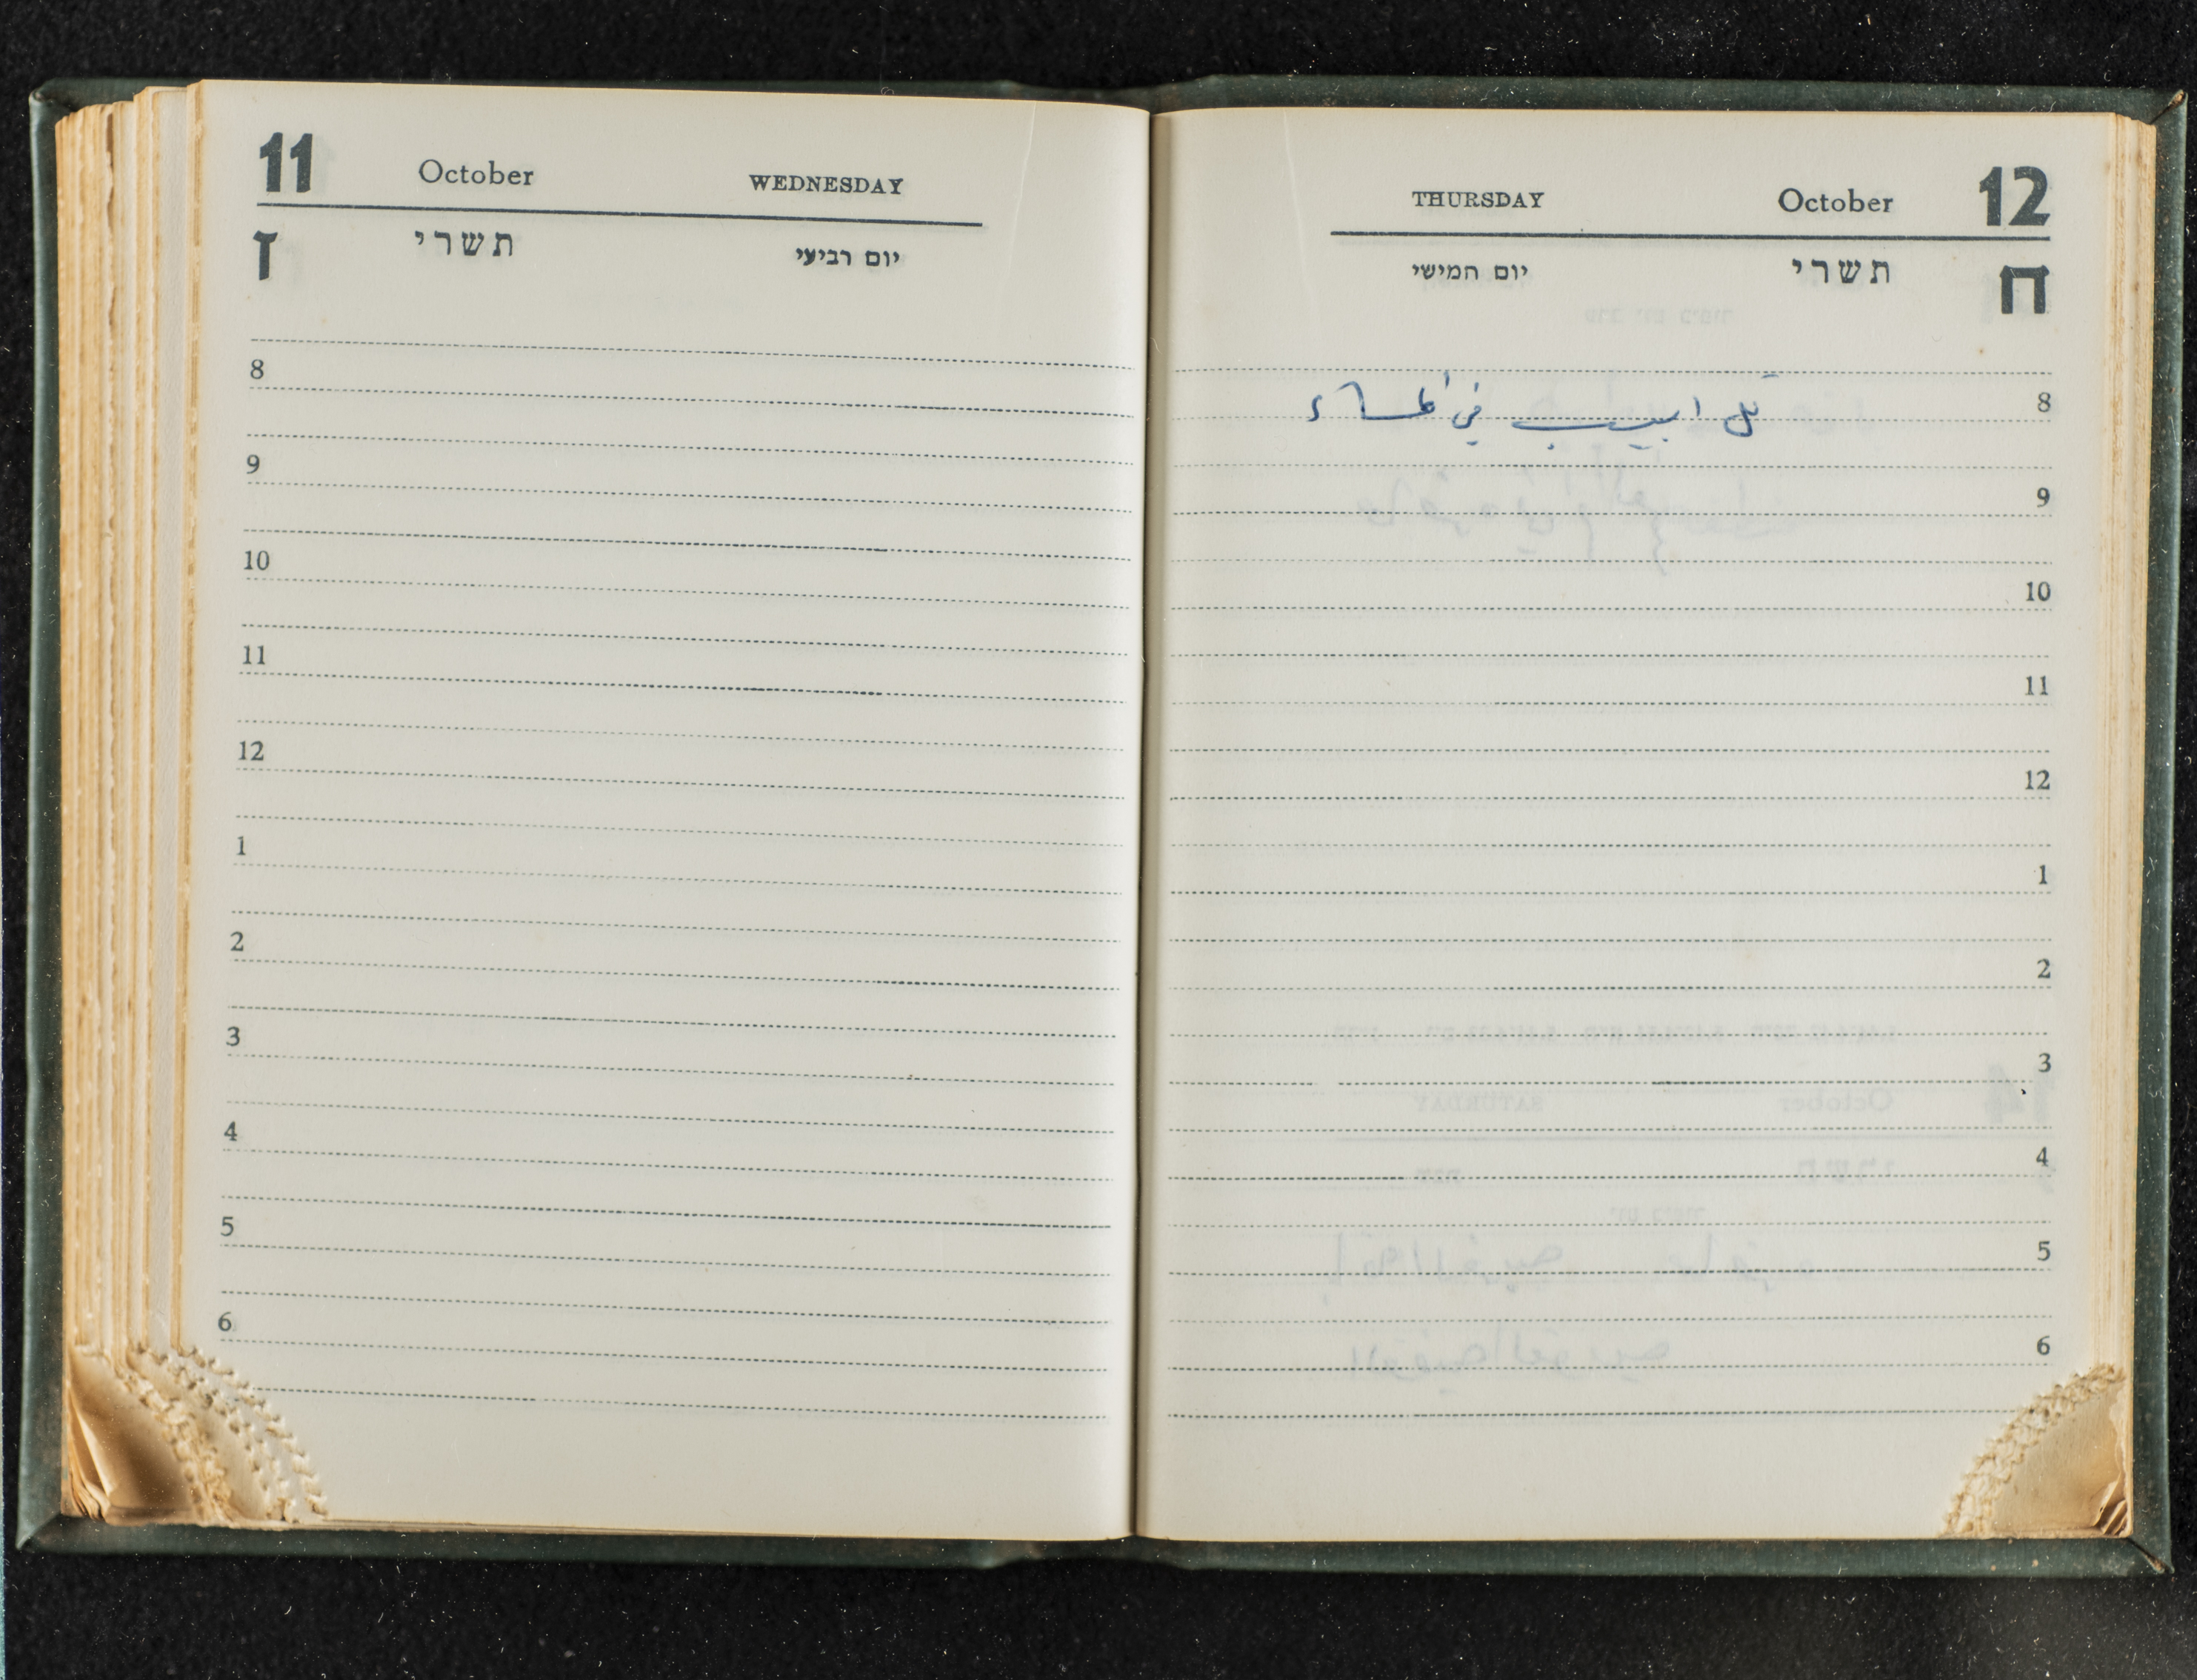 11 October WEDNESDAY
ז תשרי יום רביעי
8
9
10
11
12
1
2
3
4
5
6
THURSDAY October 12
יום חמישי תשרי ח
8 تل ابيب في المساء
9
10
11
12
1
2
3
4
5
6